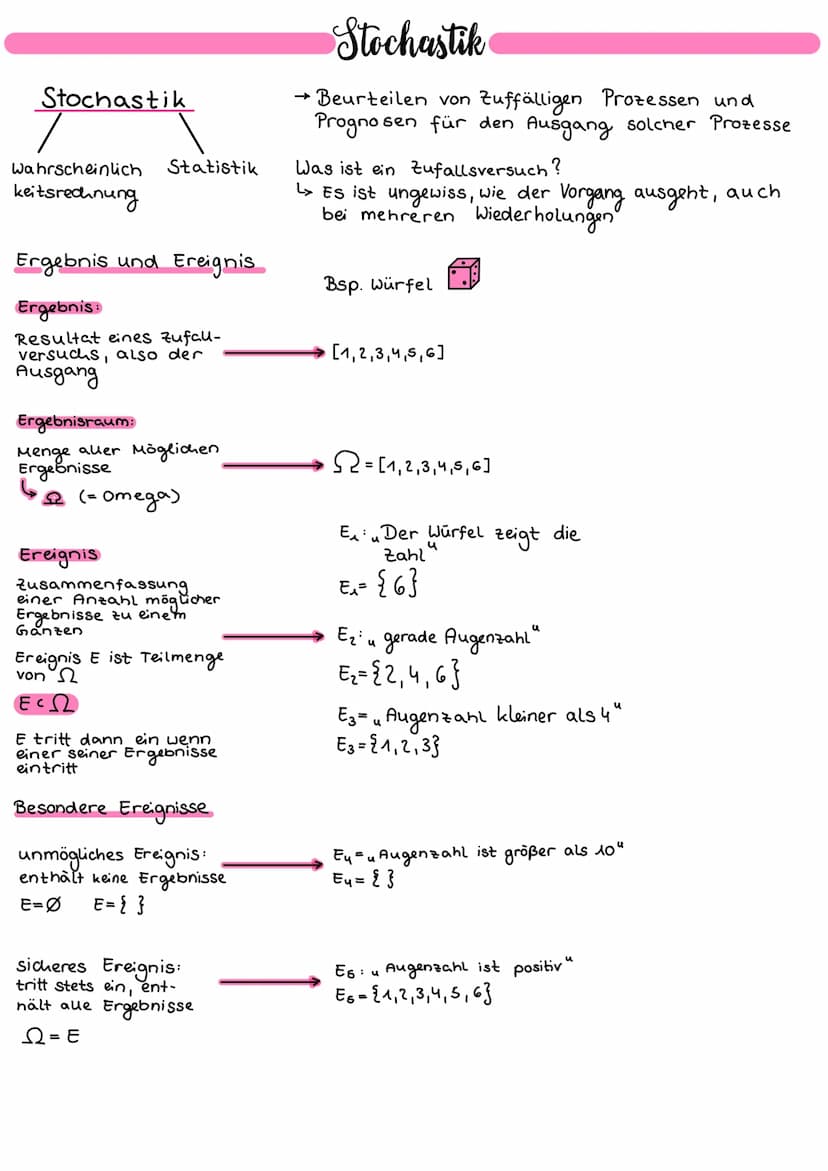 Stochastik
Stochastik
Wahrscheinlich
keitsrechnung
Statistik
→ Beurteilen von zuffälligen Prozessen und
Prognosen für den Ausgang solcher Prozesse
Was ist ein Zufallsversuch?
↳ Es ist ungewiss, wie der Vorgang ausgeht, auch
bei mehreren Wiederholungen
Ergebnis und Ereignis
Bsp. Würfel
Ergebnis:
Resultat eines Zufall-
versuchs, also der
Ausgang
[1,2,3,4,5,6]
Ergebnisraum:
Menge aller Möglichen
Ergebnisse
↳ Ω (= Omega)
Ω = [1,2,3,4,5,6]
Ereignis
Zusammenfassung
einer Anzahl möglicher
Ergebnisse zu einem
Ganzen
Ereignis E ist Teilmenge
von Ω
E ⊂ Ω
E tritt dann ein wenn
einer seiner Ergebnisse
eintritt
E₁: „Der Würfel zeigt die
Zahl“
E₁= {6}
E₂: „gerade Augenzahl“
E₂={2,4,6}
E₃= „Augenzahl kleiner als 4“
E₃={1,2,3}
Besondere Ereignisse
unmögliches Ereignis:
enthält keine Ergebnisse
E=Ø E={ }
E₄=„Augenzahl ist größer als 10“
E₄= { }
sicheres Ereignis:
tritt stets ein, ent-
hält alle Ergebnisse
Ω = E
E₅: „Augenzahl ist positiv“
E₅={1,2,3,4,5,6}